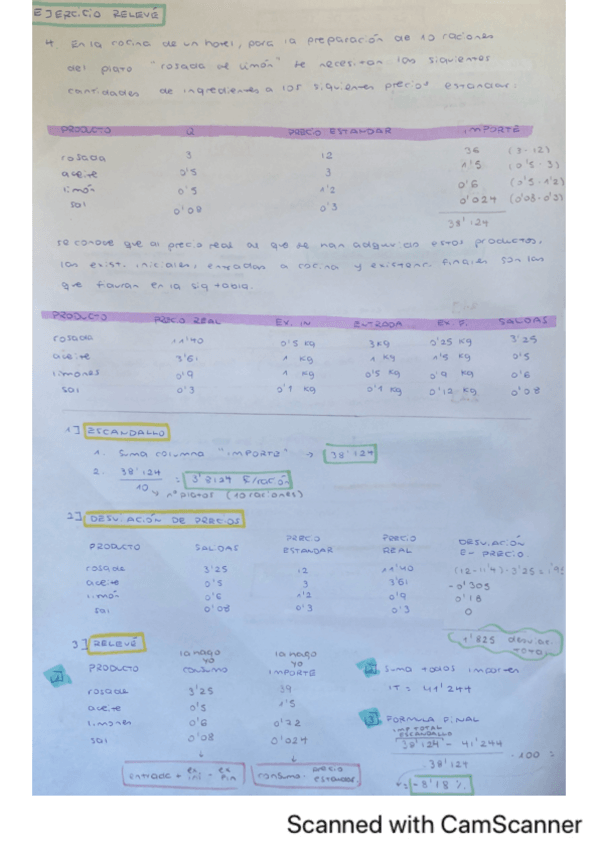 EJERCICIO RELEVÉ
4. En la cocina de un hotel, para la preparación de 10 raciones
del plato "rosada al limón" se necesitan las siguientes
cantidades de ingredientes a los siguientes precios estandar:
PRODUCTO Q PRECIO ESTANDAR IMPORTE
rosada 3 12 36 (3·12)
aceite 0'5 3 1'5 (0'5·3)
limón 0'5 1'2 0'6 (0'5·1'2)
sal 0'08 0'3 0'024 (0'08·0'3)
38'124
se conoce que al precio real al que se han adquirido estos productos,
las exist. iniciales, entradas a cocina y existenc. finales son las
que figuran en la sig tabla.
PRODUCTO PRECIO REAL EX. IN ENTRADA EX. F. SALIDAS
rosada 11'40 0'5 kg 3kg 0'25 kg 3'25
aceite 3'61 1 kg 1 kg 1'5 kg 0'5
limones 0'9 1 kg 0'5 kg 0'9 kg 0'6
sal 0'3 0'1 kg 0'1 kg 0'12 kg 0'08
1] ESCANDALLO
1. Suma columna "IMPORTE" → 38'124
2. 38'124 / 10 = 3'8124 €/ración
→ nº platos (10 raciones)
2] DESVIACIÓN DE PRECIOS
PRODUCTO SALIDAS PRECIO ESTANDAR PRECIO REAL DESVIACIÓN EN PRECIO
rosada 3'25 12 11'40 (12-11'4)·3'25 = 1'95
aceite 0'5 3 3'61 -0'305
limón 0'6 1'2 0'9 0'18
sal 0'08 0'3 0'3 0
1'825 desviac. total
3] RELEVÉ
lo hago yo lo hago yo
1] PRODUCTO CONSUMO IMPORTE
rosada 3'25 39
aceite 0'5 1'5
limones 0'6 0'72
sal 0'08 0'024
entrada + ex ini - ex fin
consumo · precio estandar
2] Suma todos importes
IT = 41'244
3] FORMULA FINAL
IMP TOTAL ESCANDALLO
38'124 - 41'244 / 38'124 · 100 =
= -8'18 %
Scanned with CamScanner